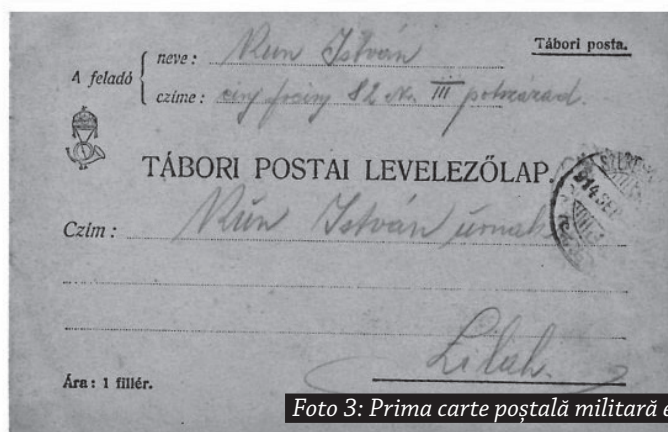 Tábori posta.
A feladó
neve: Kun István
czíme: 82 III pótszázad.
TÁBORI POSTAI LEVELEZŐLAP.
914 SEP
Czím: Kún István úrnak
Zilah.
Ára: 1 fillér.
Foto 3: Prima carte poștală militară e